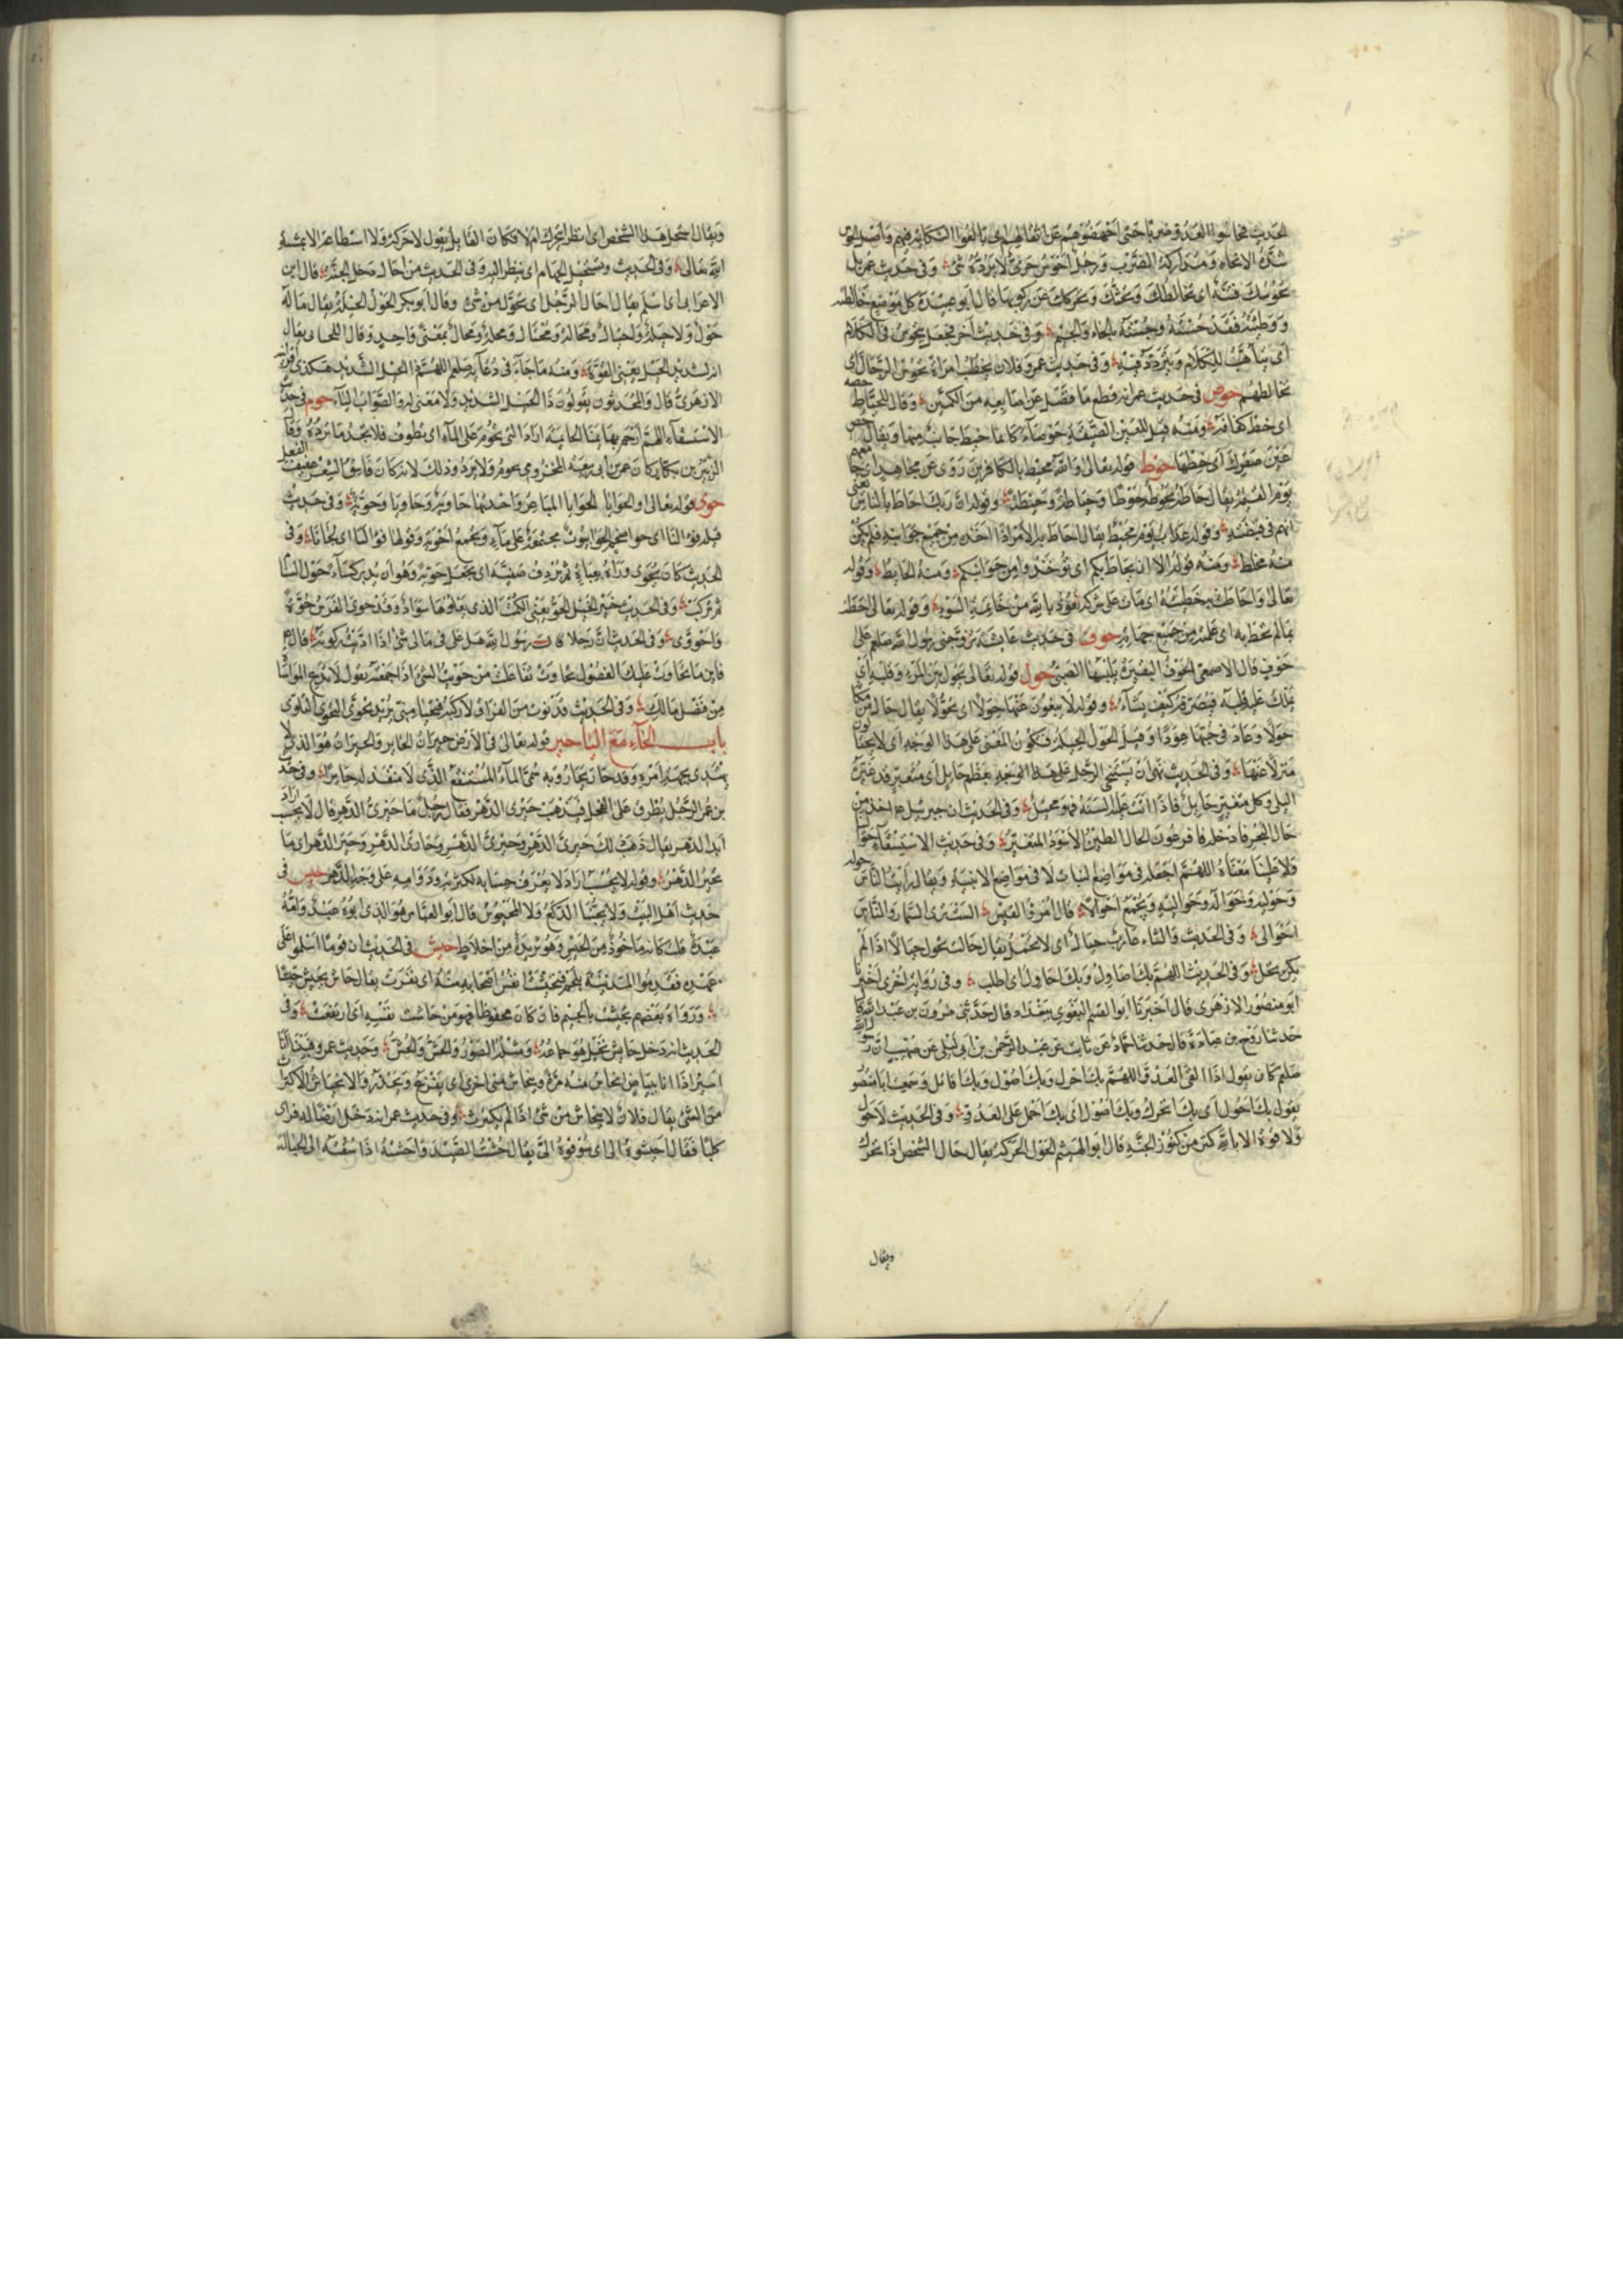 الحديث فحاسوا العدو ضربا حتى اجهضوهم عن اثقالهم اى بالغوا النكاية فيهم واصل الحوس
شدة الاختلاط ومداركة الضرب ورجل احوس جرى لا يرده شئ وفى حديث عمر بل
تحوسك فتنة اى تخالطك وتحثك وتحركك عن ركوبها قال ابو عبيدة كل موضع خالطته
ووطئته فقد حسته وجسته بالحاء والجيم وفى حديث آخر فجعل يتحوس فى الكلام
اى يتأهب للكلام ويتردد فيه وفى حديث عمر وفلان يخطب امراة تحوس الرجال اى
تخالطهم حوص فى حديث على انه قطع ما فضل عن اصابعه من الكمين وقال للخياط حصه
اى خط كفافه ومنه قيل للعين الضيقة حوصاء كانما خيط جانب منها ويقال حص
عين صقرك اى خطها حوط قوله تعالى والله محيط بالكافرين روى عن مجاهد اى جامعهم
يوم القيمة يقال حاطه يحوطه حوطا وحياطة وحيطة وقوله ان ربك احاط بالناس يعنى
انهم فى قبضته وقوله عذاب يوم محيط يقال احاط به الامر اذا اخذه من جميع جوانبه فلم يكن
منه مخلص ومنه قوله الا ان يحاط بكم اى تؤخذوا من جوانبكم ومنه الحايط وقوله
تعالى واحاطت به خطيئته اى مات على شركه نعوذ بالله من خاتمة السوء وقوله تعالى احطت
بما لم تحط به اى علمته من جميع جهاته حوف فى حديث عايشة تزوجنى رسول الله صلعم وعلى
حوف قال الاصمعى الحوف البقيرة يلبسها الصبى حول قوله تعالى يحول بين المرء وقلبه اى
يملك عليه قلبه فيصرفه كيف يشاء وقوله لا يبغون عنها حولا اى تحولا يقال حال من مكانه
حولا وعاد فى حبها عودا وقيل الحول الحيلة فيكون المعنى على هذا الوجه اى لا يحتالون
منزلا عنها وفى الحديث نهى ان يستنجى الرجل بعظم حايل اى متغير قد غيره
البلى وكل متغير حايل فاذا اتت عليه السنة فهو محيل وفى الحديث ان جبريل عم اخذ من
حال البحر فادخله فا فرعون الحال الطين الاسود المتغير وفى حديث الاستسقاء حوالينا
ولا علينا معناه اللهم اجعله فى مواضع النبات لا فى مواضع الابنية ويقال رايت الناس حوله
وحوليه وحواله وحواليه ويجمع احوالا قال امرؤ القيس الست ترى السمار والناس
احوالى وفى الحديث والشاء عازب حيال اى لا تحمل يقال حالت تحول حيالا اذا لم
يكن تحمل وفى الحديث اللهم بك اصاول وبك احاول اى اطلب وفى رواية اخرى اخبرنا
ابو منصور الازهرى قال اخبرنا ابو القسم البغوى ببغداد قال حدثنى هرون بن عبد الله قال
حدثنا روح بن عبادة قال حدثنا حماد عن ثابت عن عبد الرحمن بن ابى ليلى عن صهيب ان رسول الله
صلعم كان يقول اذا القى العدو اللهم بك احول وبك اصول وبك اقاتل وسمعت ابا منصور
يقول بك احول اى بك اتحرك وبك اصول اى بك احمل على العدو وفى الحديث لا حول
ولا قوة الا بالله كنز من كنوز الجنة قال ابو الهيثم الحول الحركة يقال حال الشخص اذا تحرك
ويقال
ويقال استحل هذا الشخص اى انظر ايتحرك ام لا فكان القايل يقول لا حركة ولا استطاعة الا بمشية
الله تعالى وفى الحديث ونستحيل الجهام اى ننظر اليه وفى الحديث من احال دخل الجنة قال ابن
الاعرابى اى اسلم يقال احال الرجل اى تحول من شئ وقال ابو بكر الحول الحيلة يقال ما له
حول ولا حيلة ولا احتيال ومحالة ومحتال ومحلة ومحال بمعنى واحد وقال اللحيانى ويقال
انه لشديد الحيل يعنى القوة ومنه ما جاء فى دعاء صلعم اللهم ذا الحيل الشديد هكذا اقرانيه
الازهرى قال والمحدثون يقولون ذا الحبل الشديد ولا معنى له والصواب الياء حوم فى حديث
الاستسقاء اللهم ارحم بهايمنا الحايمة اراد التى تحوم على الماء اى تطوف فلا تجد ما ترده وقال
الزبير بن بكار كان عمر بن ابى ربيعة المخزومى يحوم ولا يرد وذلك لانه كان فاسق الشعر عفيف الفعل
حوى قوله تعالى او الحوايا الحوايا المباعر واحدتها حاوية وحاويا وحوية وفى حديث
قيلة فوالنا اى حوا ضخم الحوا بيوت مجتمعة على ماء ويجمع احوية وقولها فوالنا اى لجانا وفى
الحديث كان يحوى وراءه بعباءة ثم يردف صفية اى يجعل حوية وهو ان يدير كساء حول السنام
ثم يركب وفى الحديث خير الخيل الحو يعنى الكمت الذى يعلوها سواد وقد حوى الفرس حوة
واحووى وفى الحديث ان رجلا قال يرسول الله هل على فى مالى شئ اذا اديت زكوته قال عم
فاين ما تحاوت عليك الفضول تحاوت تفاعلت من حويت الشئ اذا جمعته يقول لا تدع المواساة
من فضل مالك وفى الحديث
باب الحاء مع اليا حير قوله تعالى فى الارض حيران الحاير والحيران هو الذى لا
يهتدى بجهة امره وقد حار يحار وبه سمى الماء المستنقع الذى لا منفذ له حايرا وفى حديث
بن عمر الرجل يطرق على الفحل فيذهب حيرى الدهر فقال رجل ما حيرى الدهر قال لا يحسب اراد
ابد الدهر يقال ذهب ذلك حيرى الدهر وحيرى الدهر وحارى الدهر وحير الدهر اى ما
تحير الدهر وقوله لا يحسب اراد لا يعرف حسابه لكثرته ودوامه على وجه الدهر حيس فى
حديث اهل البيت ولا يحبنا الاكع ولا المحيوس قال ابو العباس هو الذى ابوه عبد وامه
عبدة قلت كانه ماخوذ من الحيس وهو ثريدة من اخلاط حيش فى الحديث ان قوما اسلموا على
عهده فقدموا المدينة بلحم فتحيشت نفس اصحابه منه اى نفرت يقال حاش يحيش حيشا
ورواه بعضهم تجيشت بالجيم فان كان محفوظا فهو من جاشت نفسه اى ارتفعت وفى
الحديث انه دخل حايش نخل هو جماعة ومثله الصور والحش والحش وحديث عمرو فبينا انا
اسير اذا انا ببياض انحاش منه مرة وينحاش منى اخرى اى يفزع ويحذر والانحياش الاكتراث
من الشئ يقال فلان لا ينحاش من شئ اذا لم يكترث وفى حديث عمر انه دخل ارضا له فراى
كلبا فقال احيشوه الى اى سوقوه الى يقال حشت الصيد واحشته اذا سقته الى الحبالة